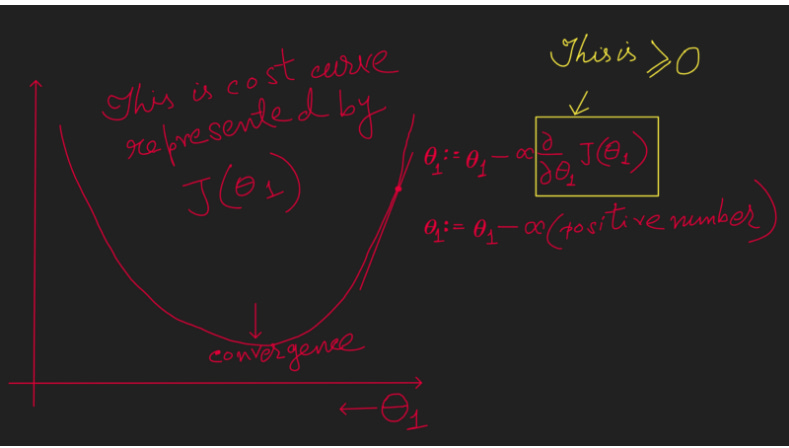 This is ≥ 0
This is cost curve
represented by
J(θ1)
θ1 := θ1 - ∝ ∂/∂θ1 J(θ1)
θ1 := θ1 - ∝ (positive number)
convergence
← θ1